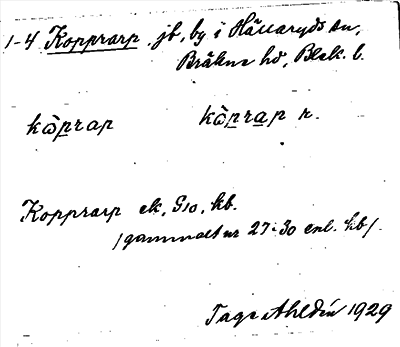 1-4 Kopprarp jb, by i Hällaryds sn,
Bräkne hd, Blek. l.
kòprap kòprap r.
Kopprarp ek, G10, kb.
/gammalt nr 27-30 enl. kb/.
Tage Ahldén 1929